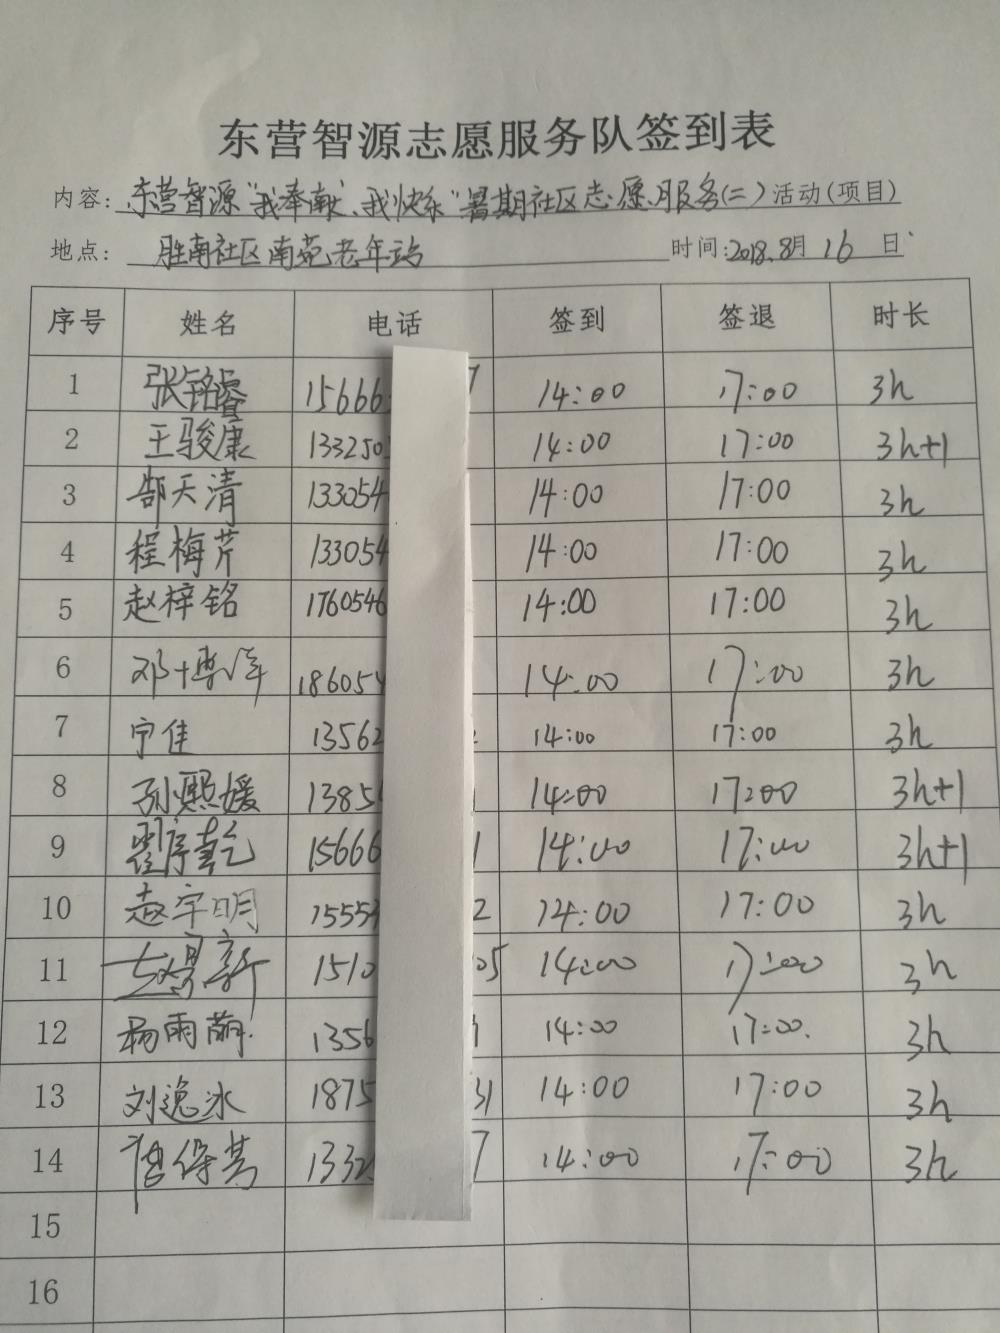 东营智源志愿服务队签到表
内容: 东营智源“我奉献、我快乐”暑期社区志愿服务(二)活动(项目)
地点: 胜南社区南苑老年站 时间:2018.8月16日
序号 姓名 电话 签到 签退 时长
1 张铭睿 15666 7 14:00 17:00 3h
2 王骏康 133250 14:00 17:00 3h+1
3 郜天清 133054 14:00 17:00 3h
4 程梅芹 133054 14:00 17:00 3h
5 赵梓铭 1760546 14:00 17:00 3h
6 邓博 186054 14:00 17:00 3h
7 宁佳 13562 14:00 17:00 3h
8 孙熙媛 1385 14:00 17:00 3h+1
9 翟序乾 15666 1 14:00 17:00 3h+1
10 赵宇明 1555 2 14:00 17:00 3h
11 1510 05 14:00 17:00 3h
12 杨雨萌. 1356 14:00 17:00. 3h
13 刘逸冰 1875 31 14:00 17:00 3h
14 1332 7 14:00 17:00 3h
15
16